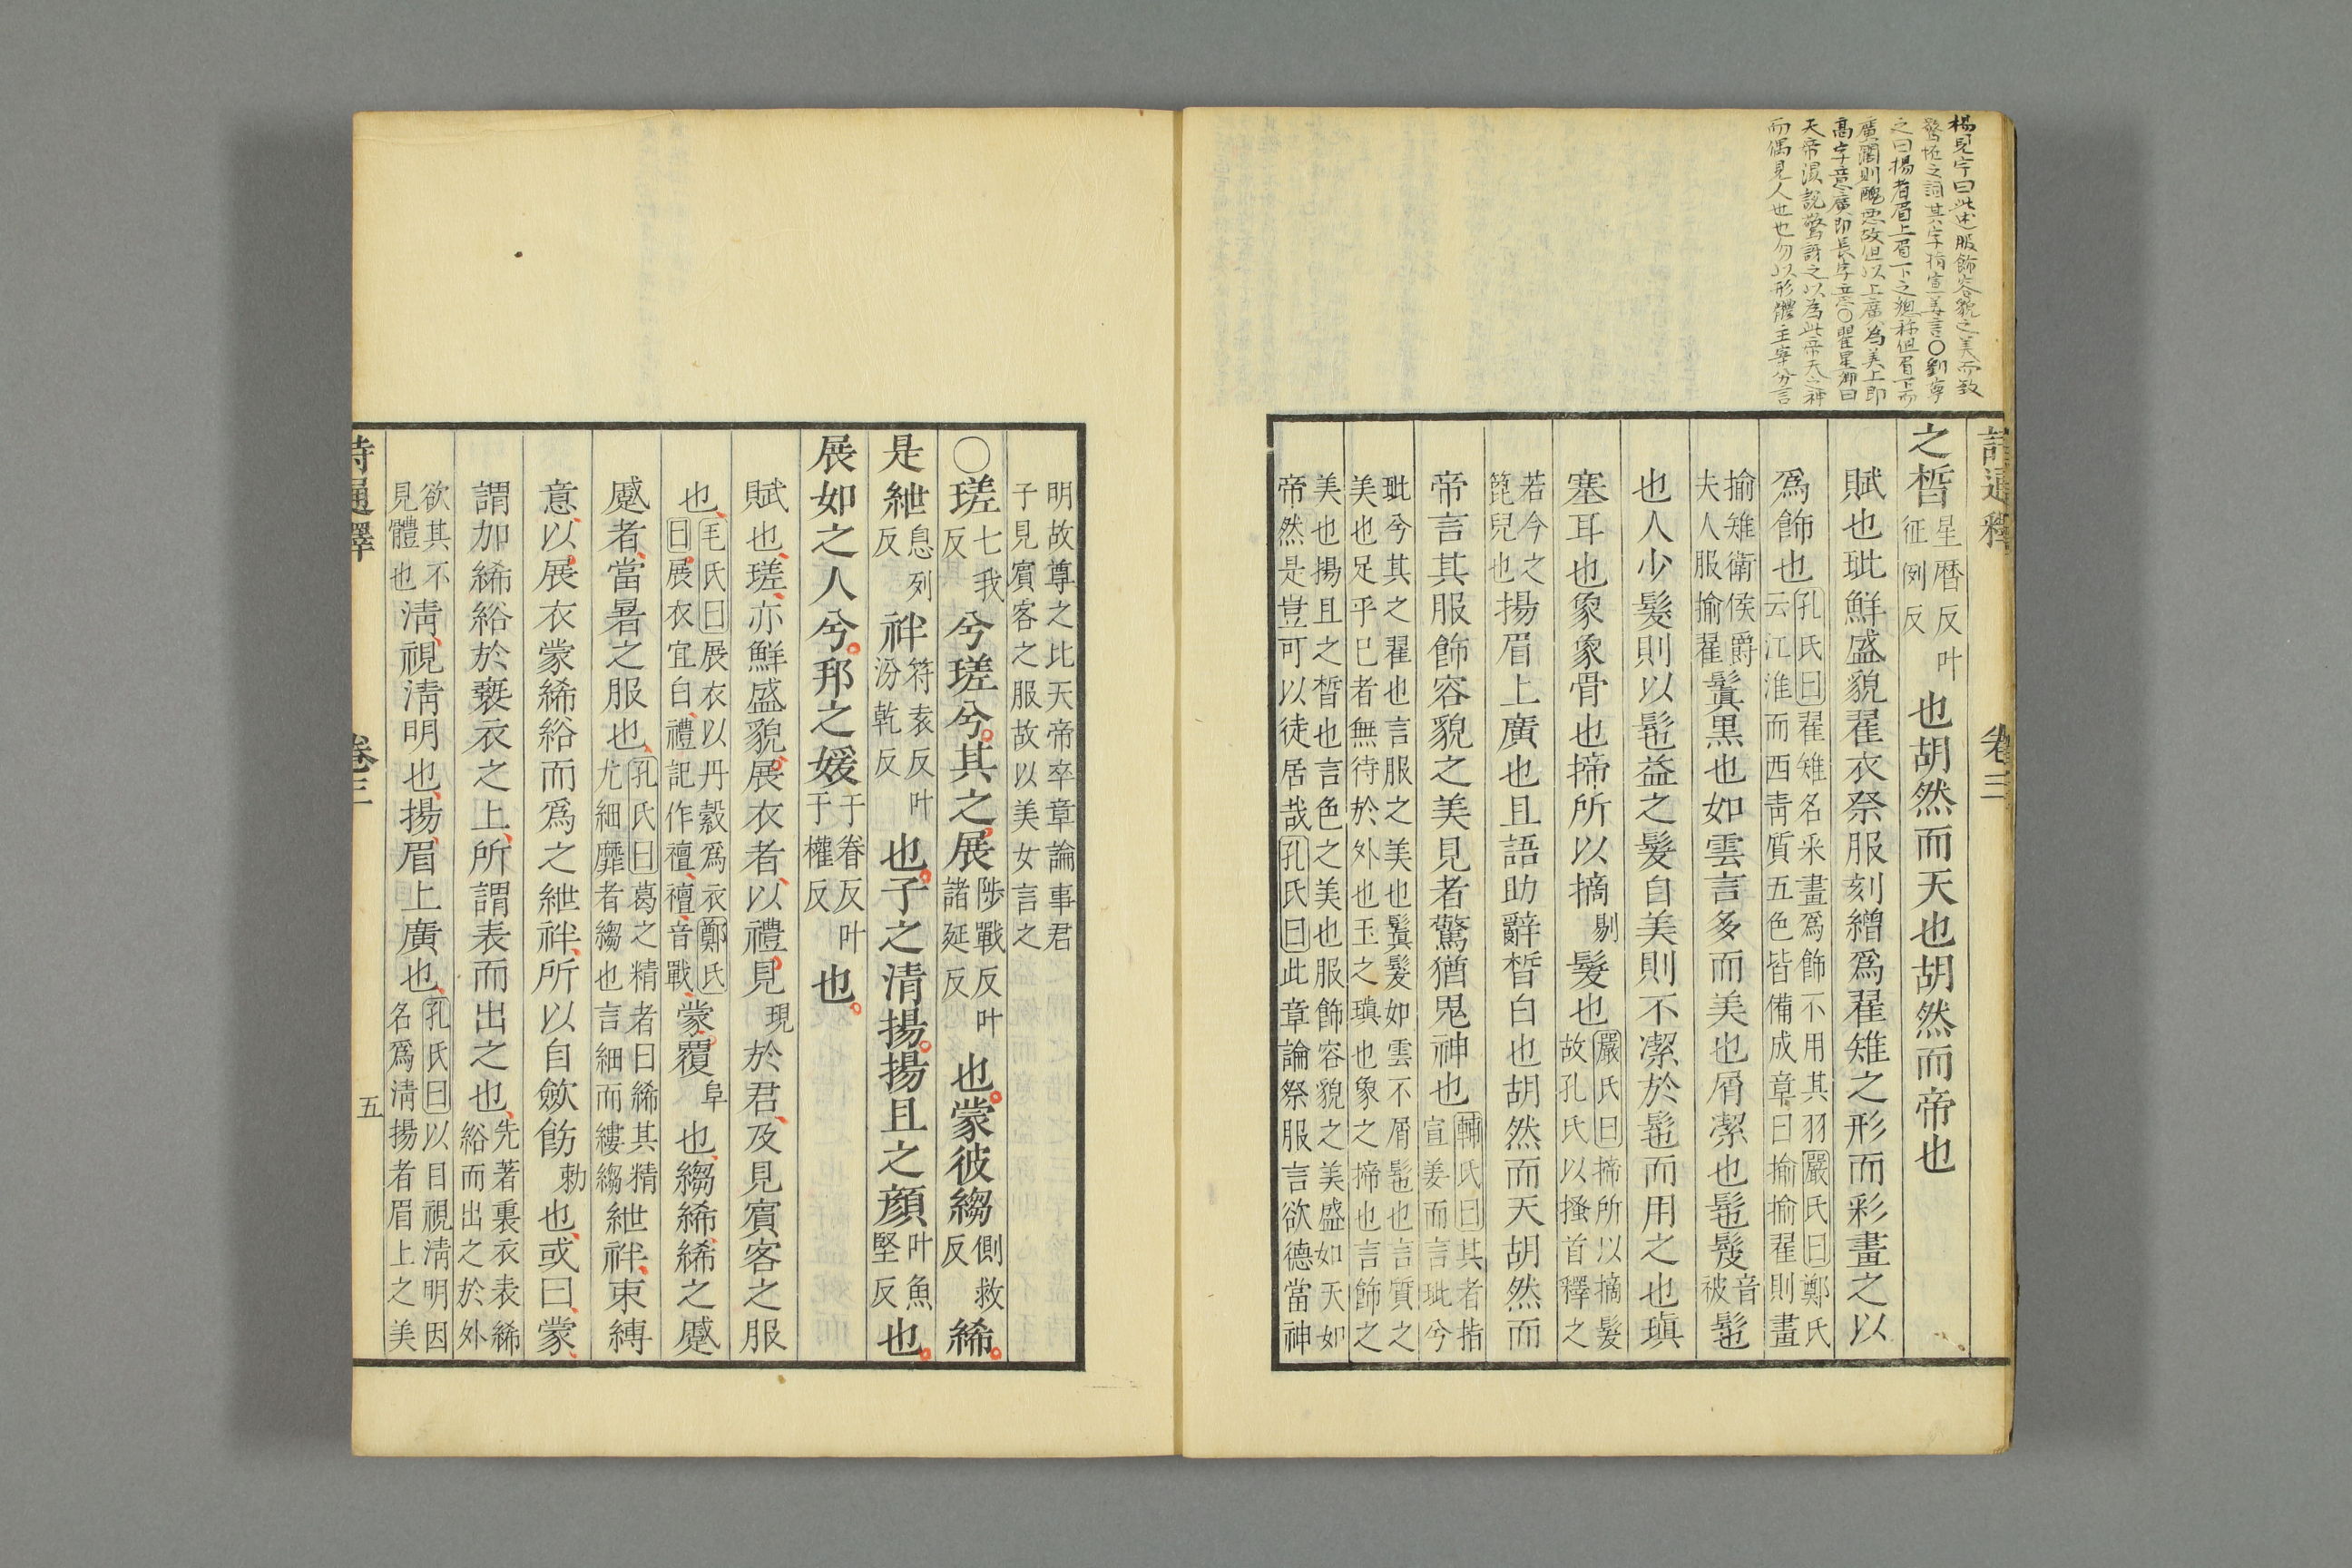 楊見宇曰此述服飾容貌之美而致
驚怪之詞其字指宣姜言〇劉
之曰揚者眉上眉下之總稱但眉下而
廣闊則醜思故但以上廣為美上即
高字意廣即長字意〇瞿星卿曰
天帝須說驚訝之以為此帝天之神
而偶見人也也勿以形體主宰分言
詩通釋 卷三
之晳星曆反叶征例反也胡然而天也胡然而帝也
賦也玼鮮盛貌翟衣祭服刻繒爲翟雉之形而彩畫之以
爲飾也孔氏曰翟雉名釆畫爲飾不用其羽嚴氏曰鄭氏云江淮而西靑質五色皆備成章曰揄揄翟則畫
揄雉衞侯爵夫人服揄翟鬒黑也如雲言多而美也屑潔也髢髲音被髢
也人少髮則以髢益之髮自美則不潔於髢而用之也瑱
塞耳也象象骨也揥所以摘剔髮也嚴氏曰揥所以摘髮故孔氏以搔首釋之
若今之篦兒也揚眉上廣也且語助辭晳白也胡然而天胡然而
帝言其服飾容貌之美見者驚猶鬼神也輔氏曰其者指宣姜而言玼兮
玼兮其之翟也言服之美也鬒髮如雲不屑髢也言質之
美也足乎已者無待於外也玉之瑱也象之揥也言飾之
美也揚且之晳也言色之美也服飾容貌之美盛如天如
帝然是豈可以徒居哉孔氏曰此章論祭服言欲德當神
明故尊之比天帝卒章論事君
子見賓客之服故以美女言之
〇瑳七我反兮瑳兮其之展陟戰反叶諸延反也蒙彼縐側救反絺
是紲息列反袢符袁反叶汾乾反也子之清揚揚且之顏叶魚堅反也
展如之人兮邦之媛于眷反叶于權反也
賦也瑳亦鮮盛貌展衣者以禮見現於君及見賓客之服
也毛氏曰展衣以丹縠爲衣鄭氏曰展衣宜白禮記作襢襢音戰蒙覆阜也縐絺絺之蹙
蹙者當暑之服也孔氏曰葛之精者曰絺其精尤細靡者縐也言細而縷縐紲袢束縛
意以展衣蒙絺綌而爲之紲袢所以自歛飭勅也或曰蒙
謂加絺綌於褻衣之上所謂表而出之也先著裏衣表絺綌而出之於外
欲其不見體也清視清明也揚眉上廣也孔氏曰以目視淸明因名爲淸揚者眉上之美
詩通釋 卷三 五